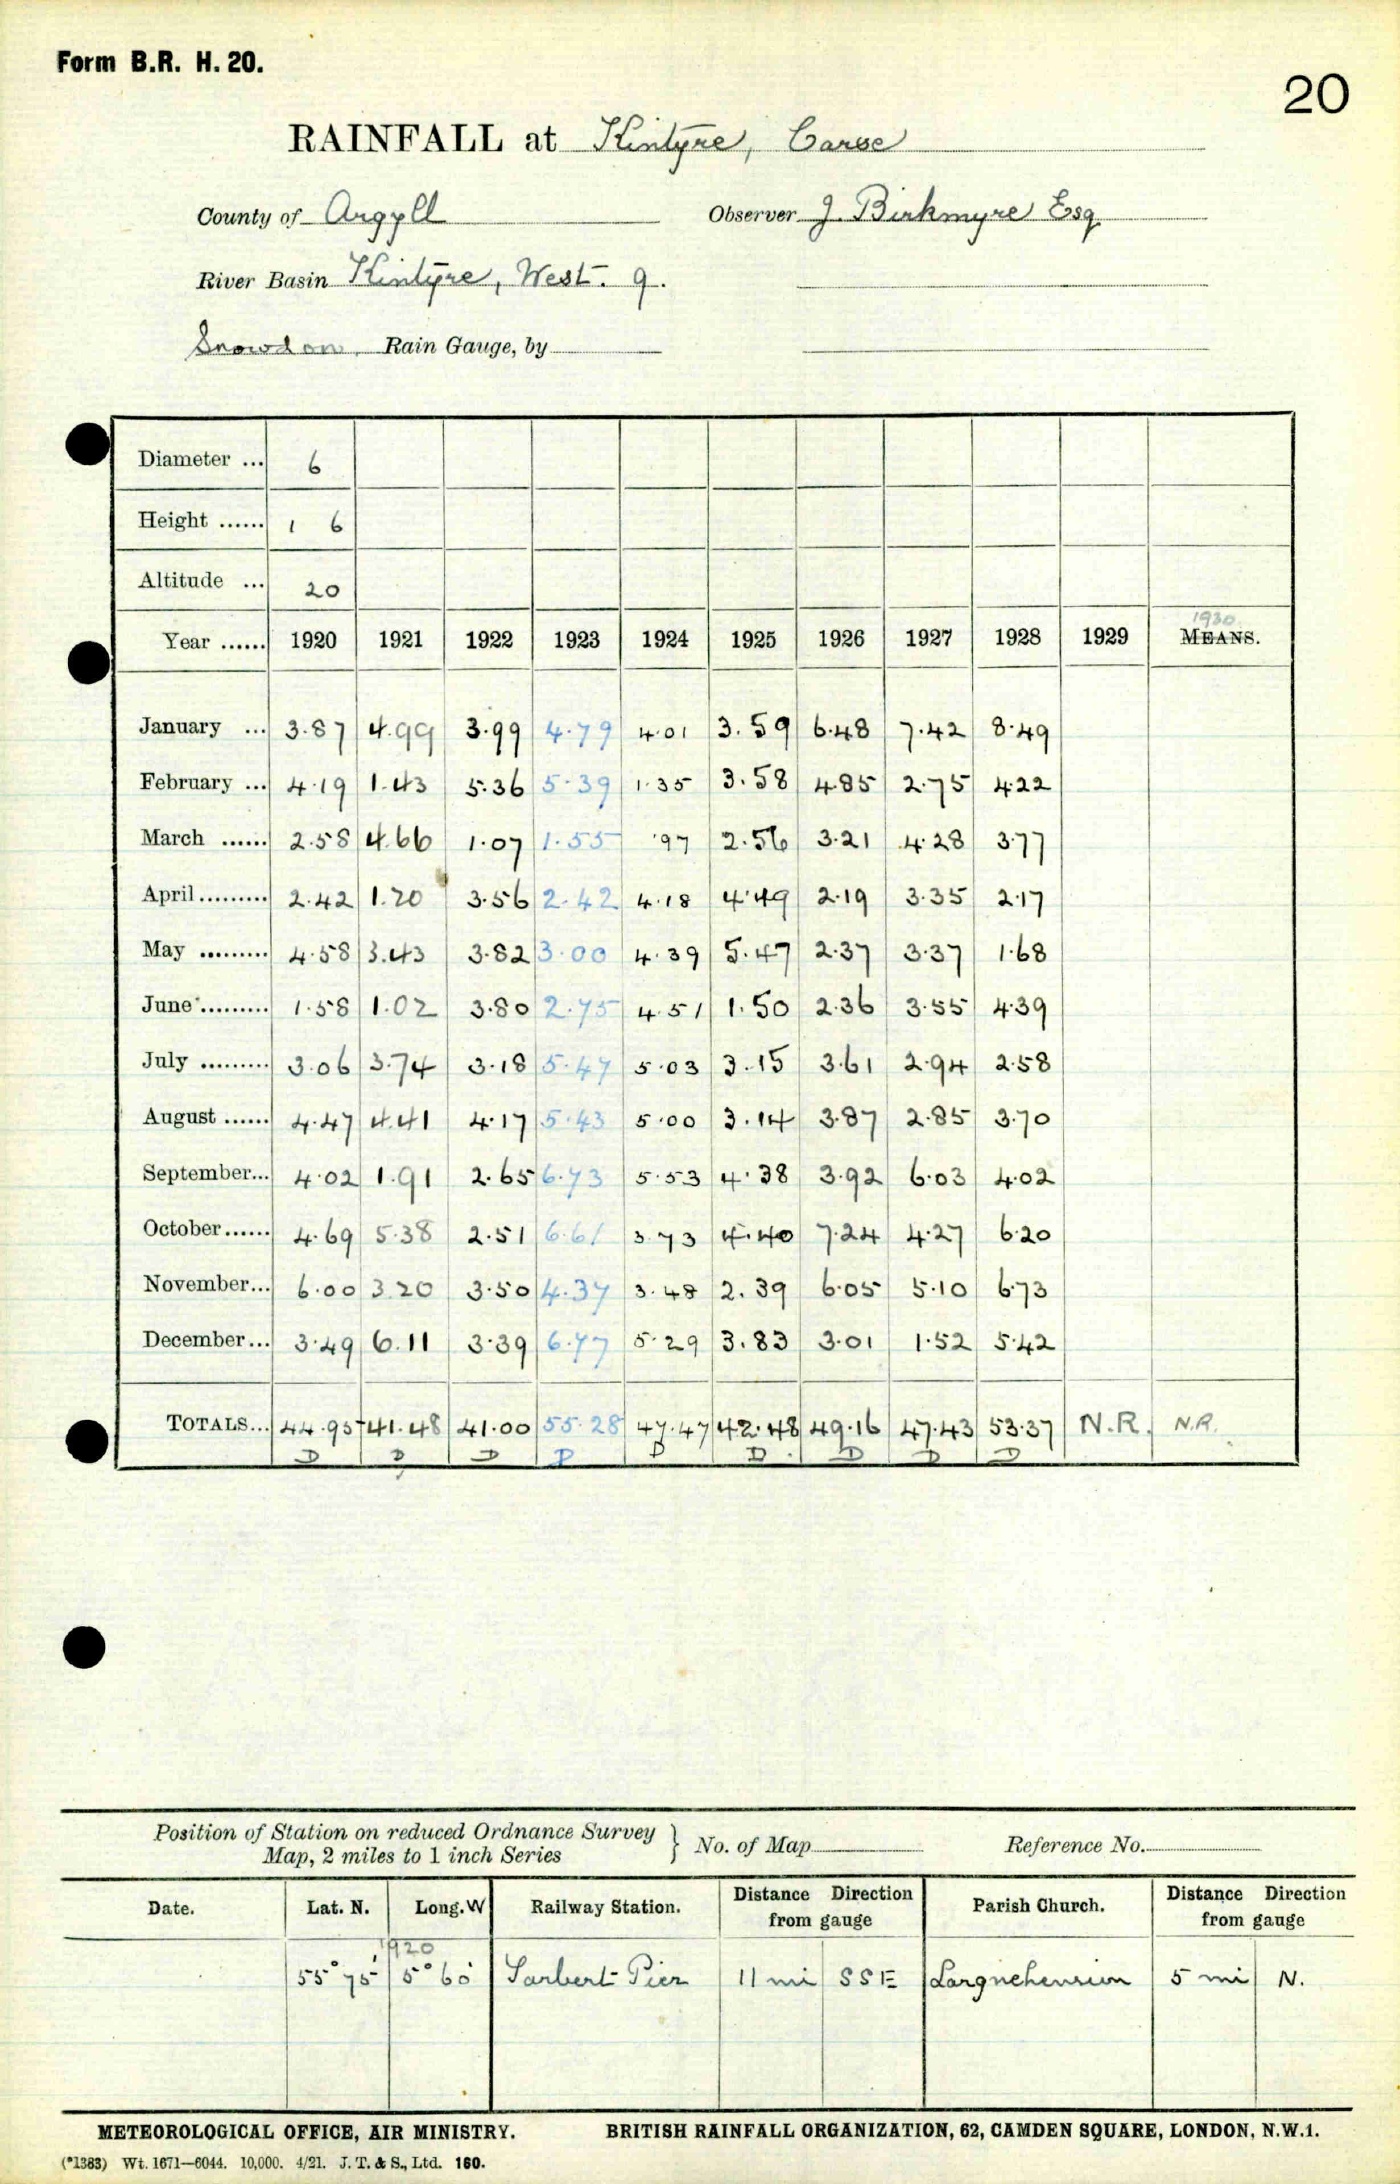 Form B.R. H. 20.
20
RAINFALL at Kintyre, Carse
County of Argyll Observer J. Birkmyre Esq
River Basin Kintyre, West. 9.
Snowdon Rain Gauge, by
Diameter ... 6
Height ...... 1 6
Altitude ... 20
1930
Year ...... 1920 1921 1922 1923 1924 1925 1926 1927 1928 1929 MEANS.
January ... 3.87 4.99 3.99 4.79 4.01 3.59 6.48 7.42 8.49
February ... 4.19 1.43 5.36 5.39 1.35 3.58 4.85 2.75 4.22
March ...... 2.58 4.66 1.07 1.55 .97 2.56 3.21 4.28 3.77
April ......... 2.42 1.20 3.56 2.42 4.18 4.49 2.19 3.35 2.17
May ......... 4.58 3.43 3.82 3.00 4.39 5.47 2.37 3.37 1.68
June ......... 1.58 1.02 3.80 2.75 4.51 1.50 2.36 3.55 4.39
July ......... 3.06 3.74 3.18 5.47 5.03 3.15 3.61 2.94 2.58
August ...... 4.47 4.41 4.17 5.43 5.00 3.14 3.87 2.85 3.70
September... 4.02 1.91 2.65 6.73 5.53 4.38 3.92 6.03 4.02
October...... 4.69 5.38 2.51 6.61 3.73 4.40 7.24 4.27 6.20
November... 6.00 3.20 3.50 4.37 3.48 2.39 6.05 5.10 6.73
December... 3.49 6.11 3.39 6.77 5.29 3.83 3.01 1.52 5.42
TOTALS... 44.95 41.48 41.00 55.28 47.47 42.48 49.16 47.43 53.37 N.R. N.R.
D D D D D D D D D
Position of Station on reduced Ordnance Survey
Map, 2 miles to 1 inch Series } No. of Map Reference No.
Date. Lat. N. Long. W Railway Station. Distance Direction from gauge Parish Church. Distance Direction from gauge
1920
55° 75' 5° 60' Tarbert Pier 11 mi SSE 5 mi N.
METEOROLOGICAL OFFICE, AIR MINISTRY. BRITISH RAINFALL ORGANIZATION, 62, CAMDEN SQUARE, LONDON, N.W.1.
(*1383) Wt. 1671—6044. 10,000. 4/21. J. T. & S., Ltd. 160.